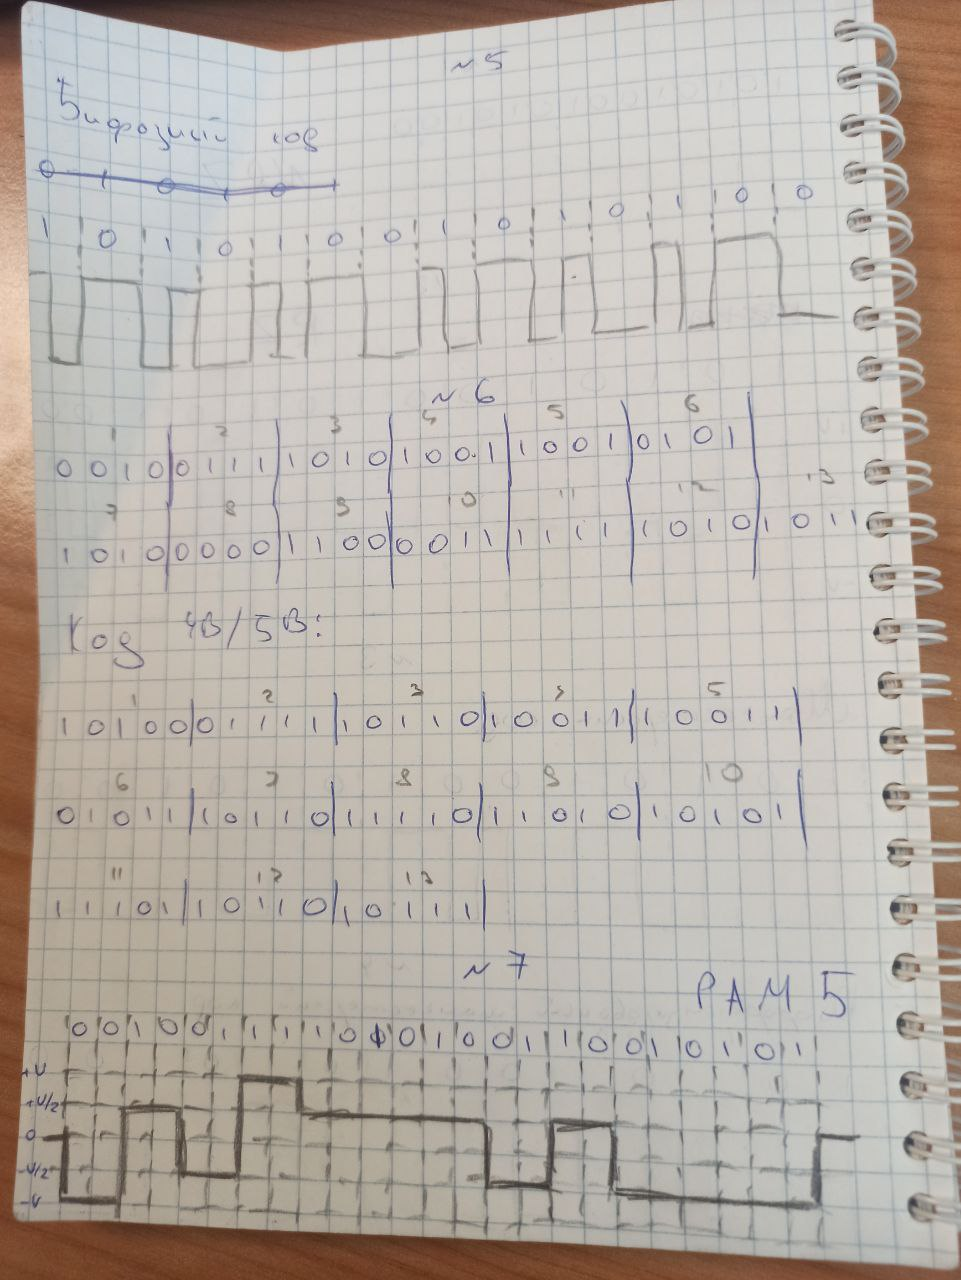 ~ 5
Бифазный код
0 1 0 1 0 1
1 0 1 0 1 0 0 1 0 1 0 1 0 0
~ 6
1 2 3 4 5 6
0 0 1 0 | 0 1 1 1 | 1 0 1 0 | 1 0 0 1 | 1 0 0 1 | 0 1 0 1 |
7 8 9 10 11 12 13
1 0 1 0 | 0 0 0 0 | 1 1 0 0 | 0 0 1 1 | 1 1 1 1 | 1 0 1 0 | 1 0 1 1
Код 4B/5B:
1 2 3 4 5
1 0 1 0 0 | 0 1 1 1 1 | 1 0 1 1 0 | 1 0 0 1 1 | 1 0 0 1 1 |
6 7 8 9 10
0 1 0 1 1 | 1 0 1 1 0 | 1 1 1 1 0 | 1 1 0 1 0 | 1 0 1 0 1 |
11 12 13
1 1 1 0 1 | 1 0 1 1 0 | 1 0 1 1 1 |
~ 7
PAM 5
0 0 1 0 0 1 1 1 1 0 0 1 0 0 1 1 0 0 1 0 1 0 1
+V
+V/2
0
-V/2
-V